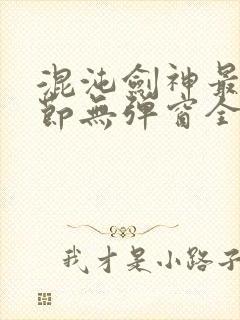 混沌劍神最
節無彈窗全
我才是小路子